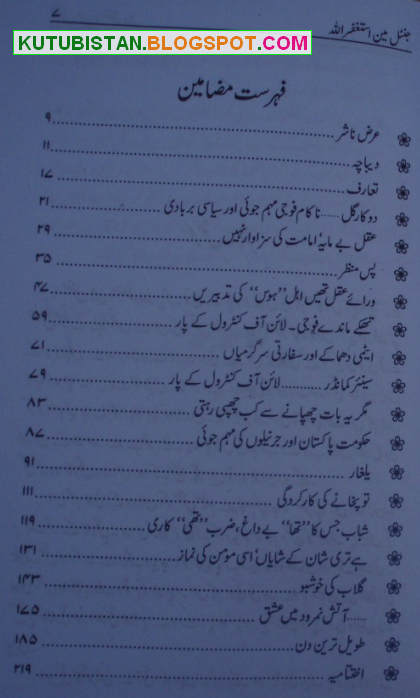 ۷
جنٹل مین استغفراللہ
KUTUBISTAN.BLOGSPOT.COM
فہرست مضامین
عرض ناشر ۹
دیباچہ ۱۱
تعارف ۱۷
دو کارگل ...... ناکام فوجی مہم جوئی اور سیاسی بربادی ۲۱
عقل بے مایہ امامت کی سزاوار نہیں ۲۹
پس منظر ۳۵
ورائے عقل تھیں اہل ’’ہوس‘‘ کی تدبیریں ۴۷
تھکے ماندے فوجی۔ لائن آف کنٹرول کے پار ۵۹
ایٹمی دھماکے اور سفارتی سرگرمیاں ۷۱
سینئر کمانڈر .......... لائن آف کنٹرول کے پار ۷۹
مگر یہ بات چھپانے سے کب چھپی رہتی ۸۳
حکومت پاکستان اور جرنیلوں کی مہم جوئی ۸۷
یلغار ۹۱
توپخانے کی کارکردگی ۱۱۱
شباب جس کا ’’تھا‘‘ بے داغ، ضرب ’’تھی‘‘ کاری ۱۱۹
ہے تری شان کے شایاں اسی مومن کی نماز ۱۳۱
گلاب کی خوشبو ۱۴۳
...... آتش نمرود میں عشق ۱۷۵
طویل ترین دن ۱۸۵
اختتامیہ ۲۱۹